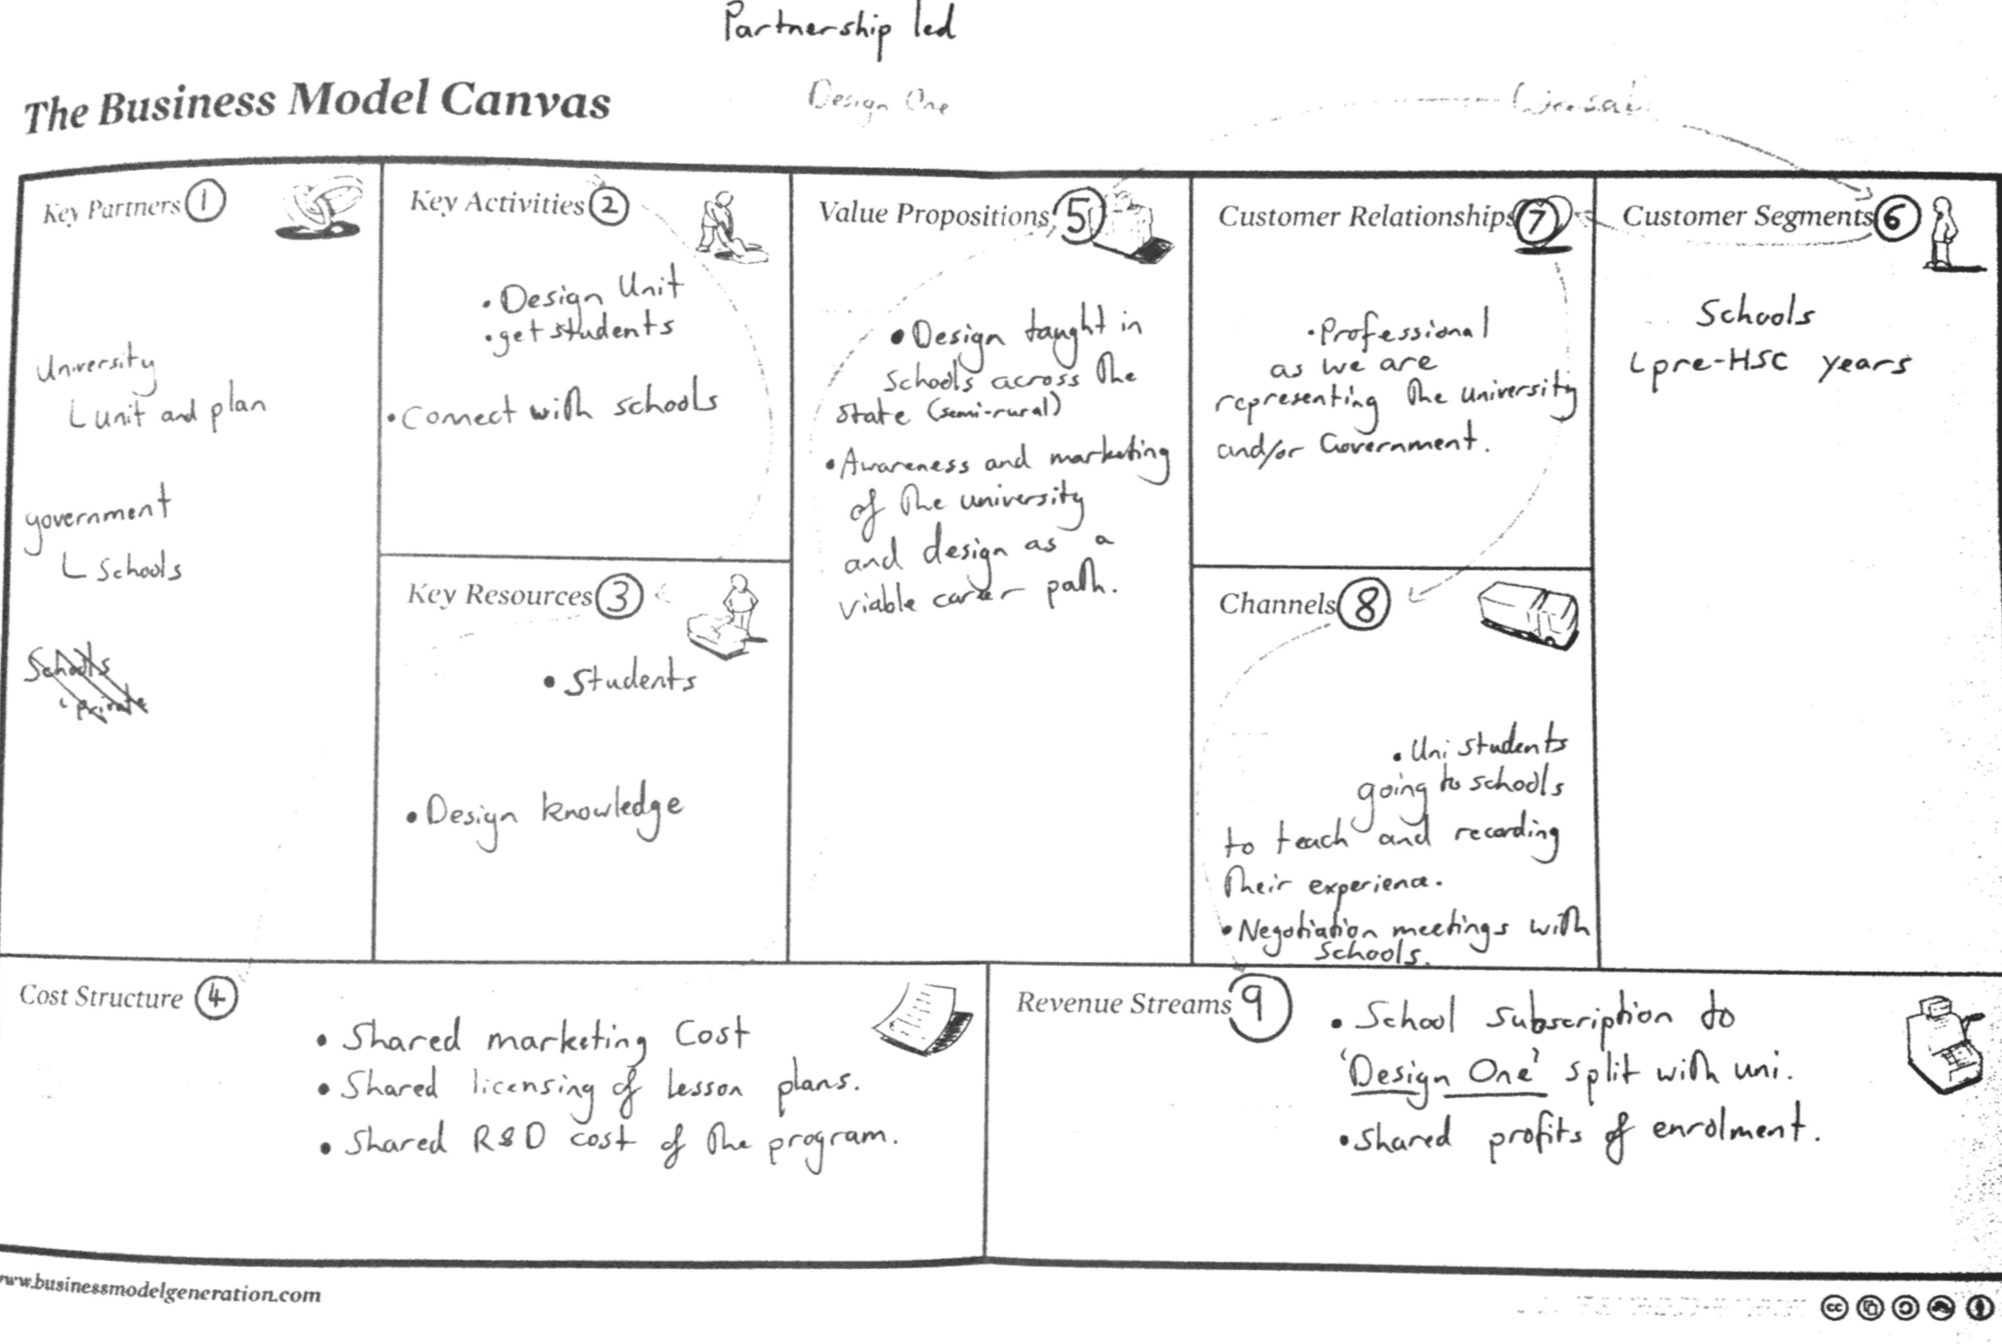 Partnership led
The Business Model Canvas
Design One
Key Partners 1
University
unit and plan
government
Schools
Schools
private
Key Activities 2
• Design Unit
• get students
• Connect with schools
Key Resources 3
• Students
• Design knowledge
Value Propositions 5
• Design taught in
Schools across the
state (semi-rural)
• Awareness and marketing
of the university
and design as a
viable career path.
Customer Relationships 7
• Professional
as we are
representing the university
and/or Government.
Channels 8
• Uni students
going to schools
to teach and recording
their experience.
• Negotiation meetings with
Schools.
Customer Segments 6
Schools
pre-HSC years
Cost Structure 4
• Shared marketing Cost
• Shared licensing of lesson plans.
• Shared R&D cost of the program.
Revenue Streams 9
• School Subscription to
'Design One' split with uni.
• Shared profits of enrolment.
www.businessmodelgeneration.com
cc